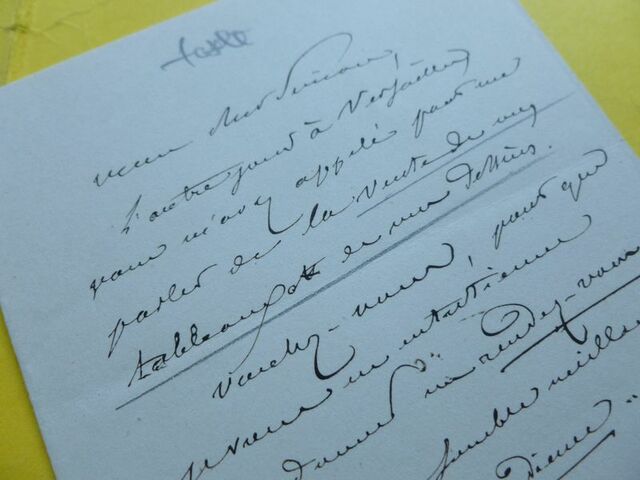 table
mon cher Simon,
l'autre jour à Versailles
vous m'avez appelé pour me
parler de la vente de mes
tableaux et de mes dessins.
Voulez-vous, pour que
je vous en entretienne
donner un rendez-vous
semble meilleur